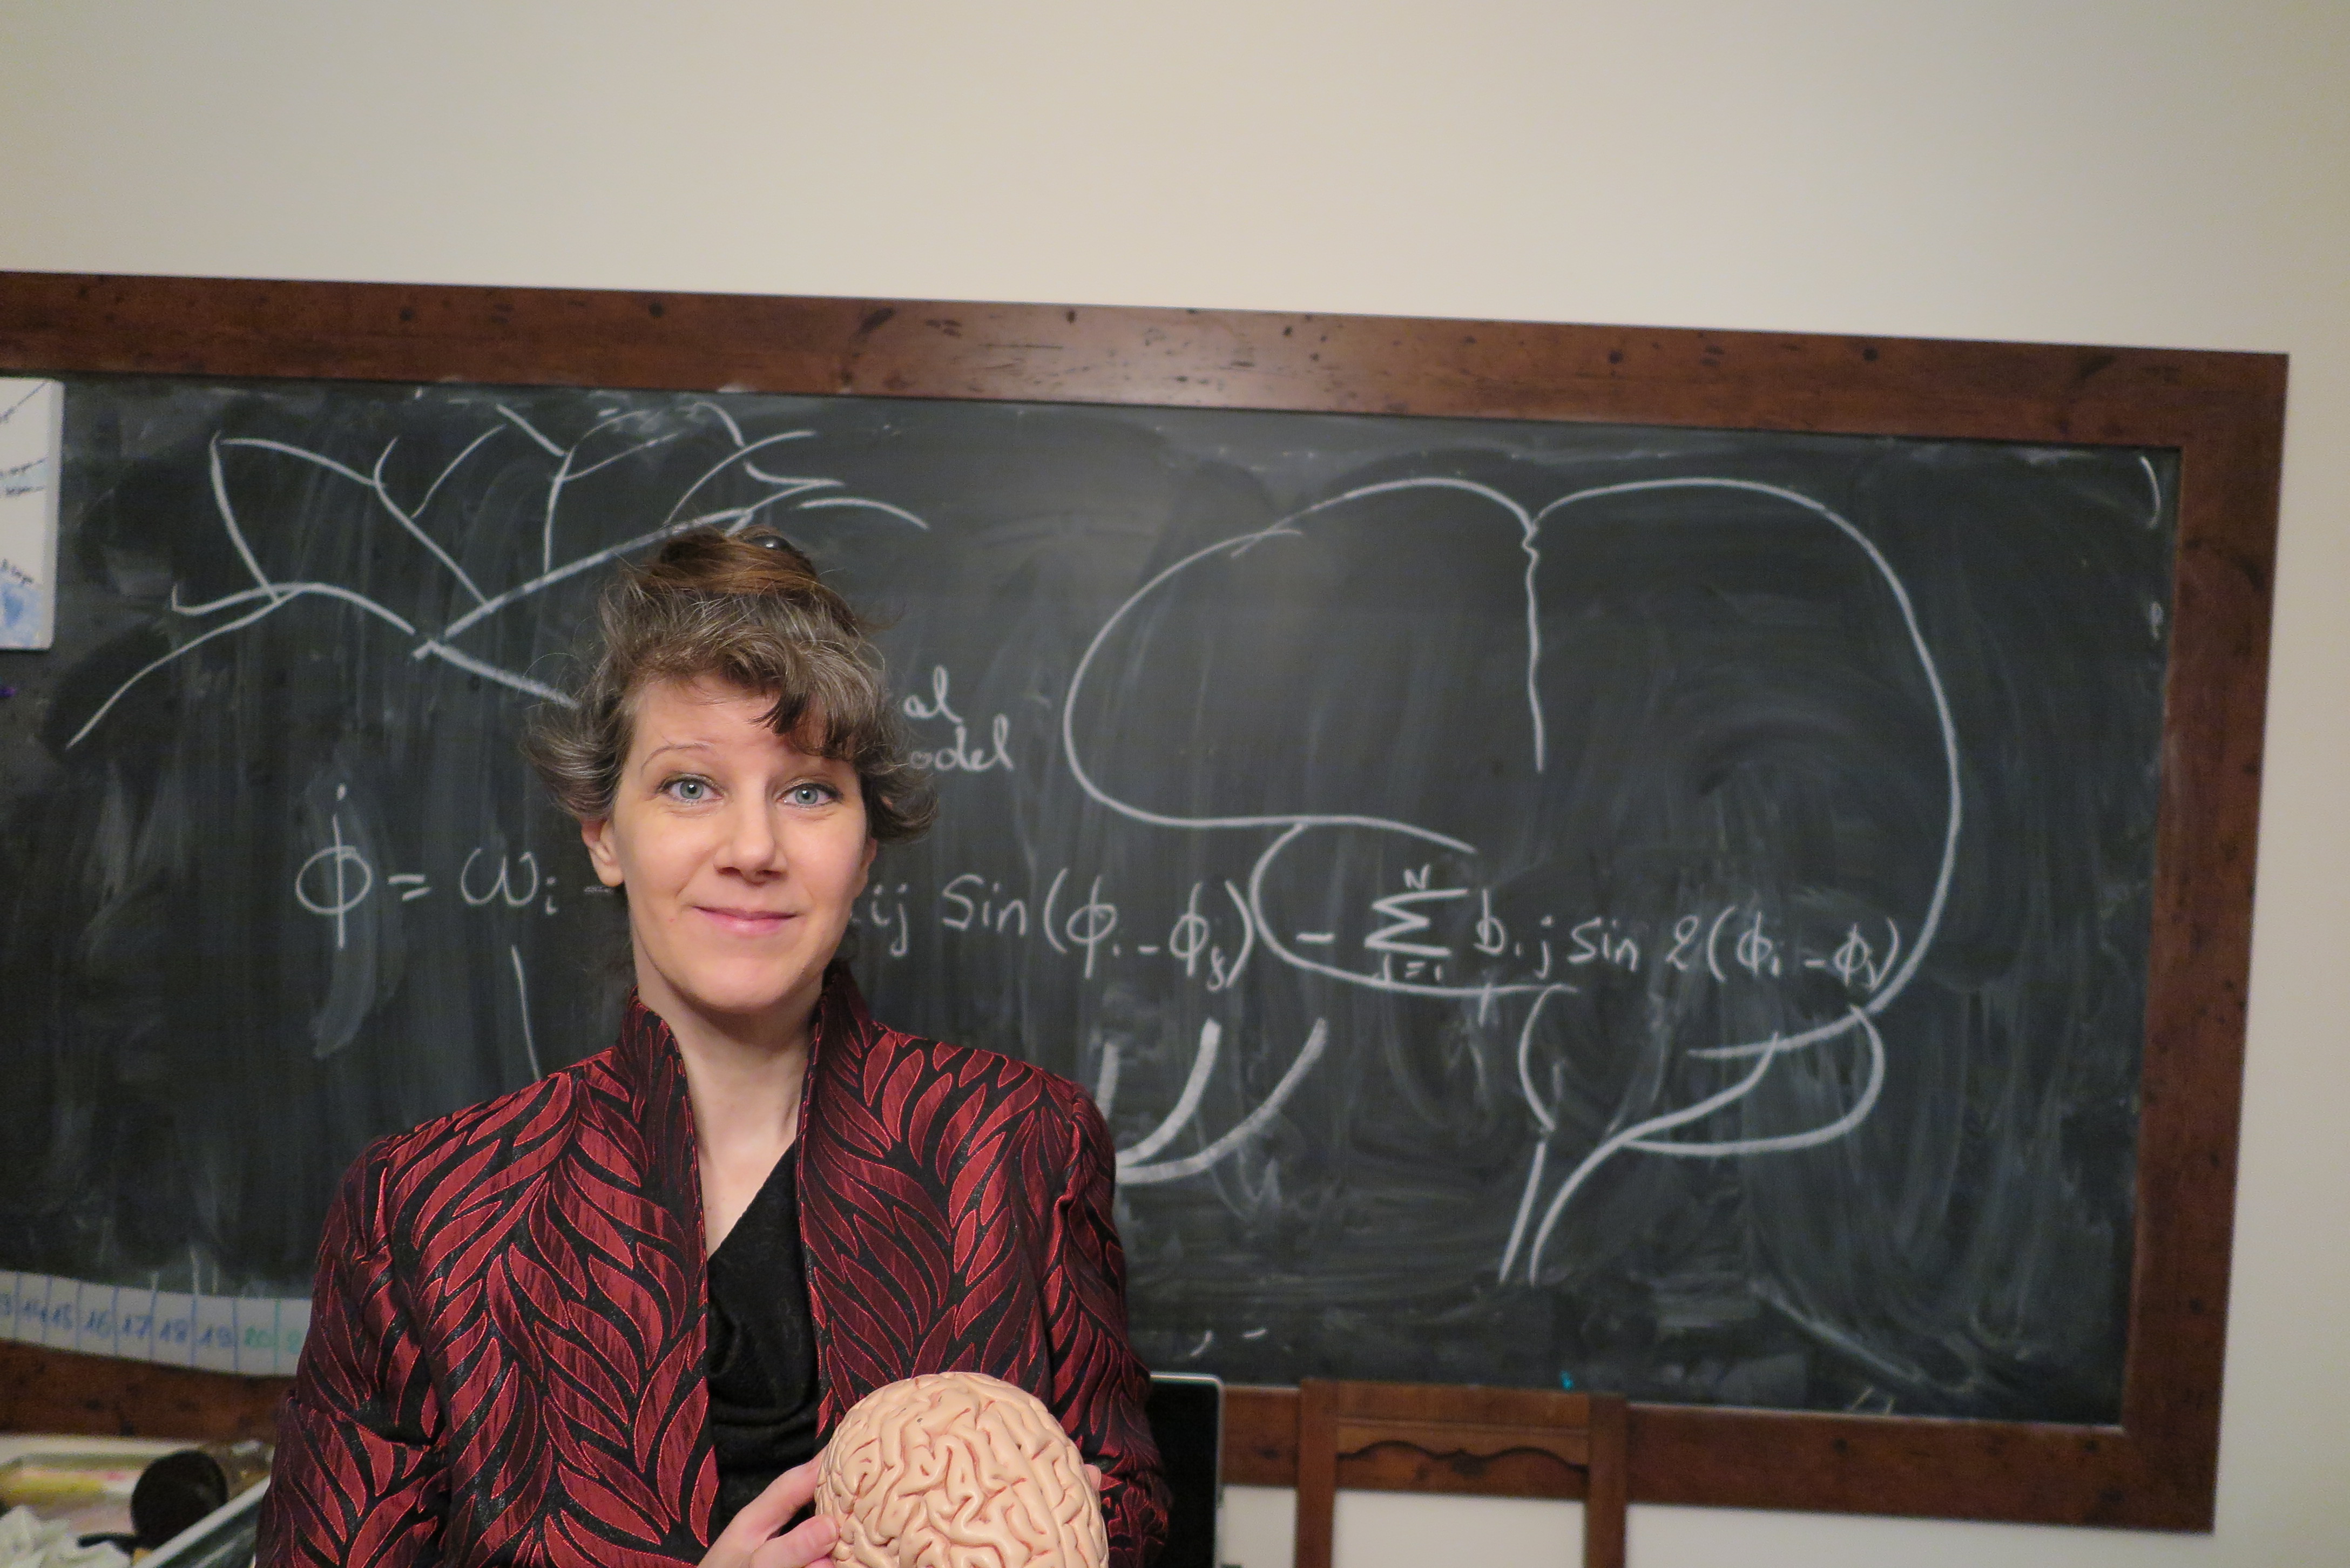 al
odel
ϕ̇ = ωi - ij sin(ϕi - ϕj) - ∑ N j=1 bij sin 2(ϕi - ϕj)
13 14 15 16 17 18 19 20